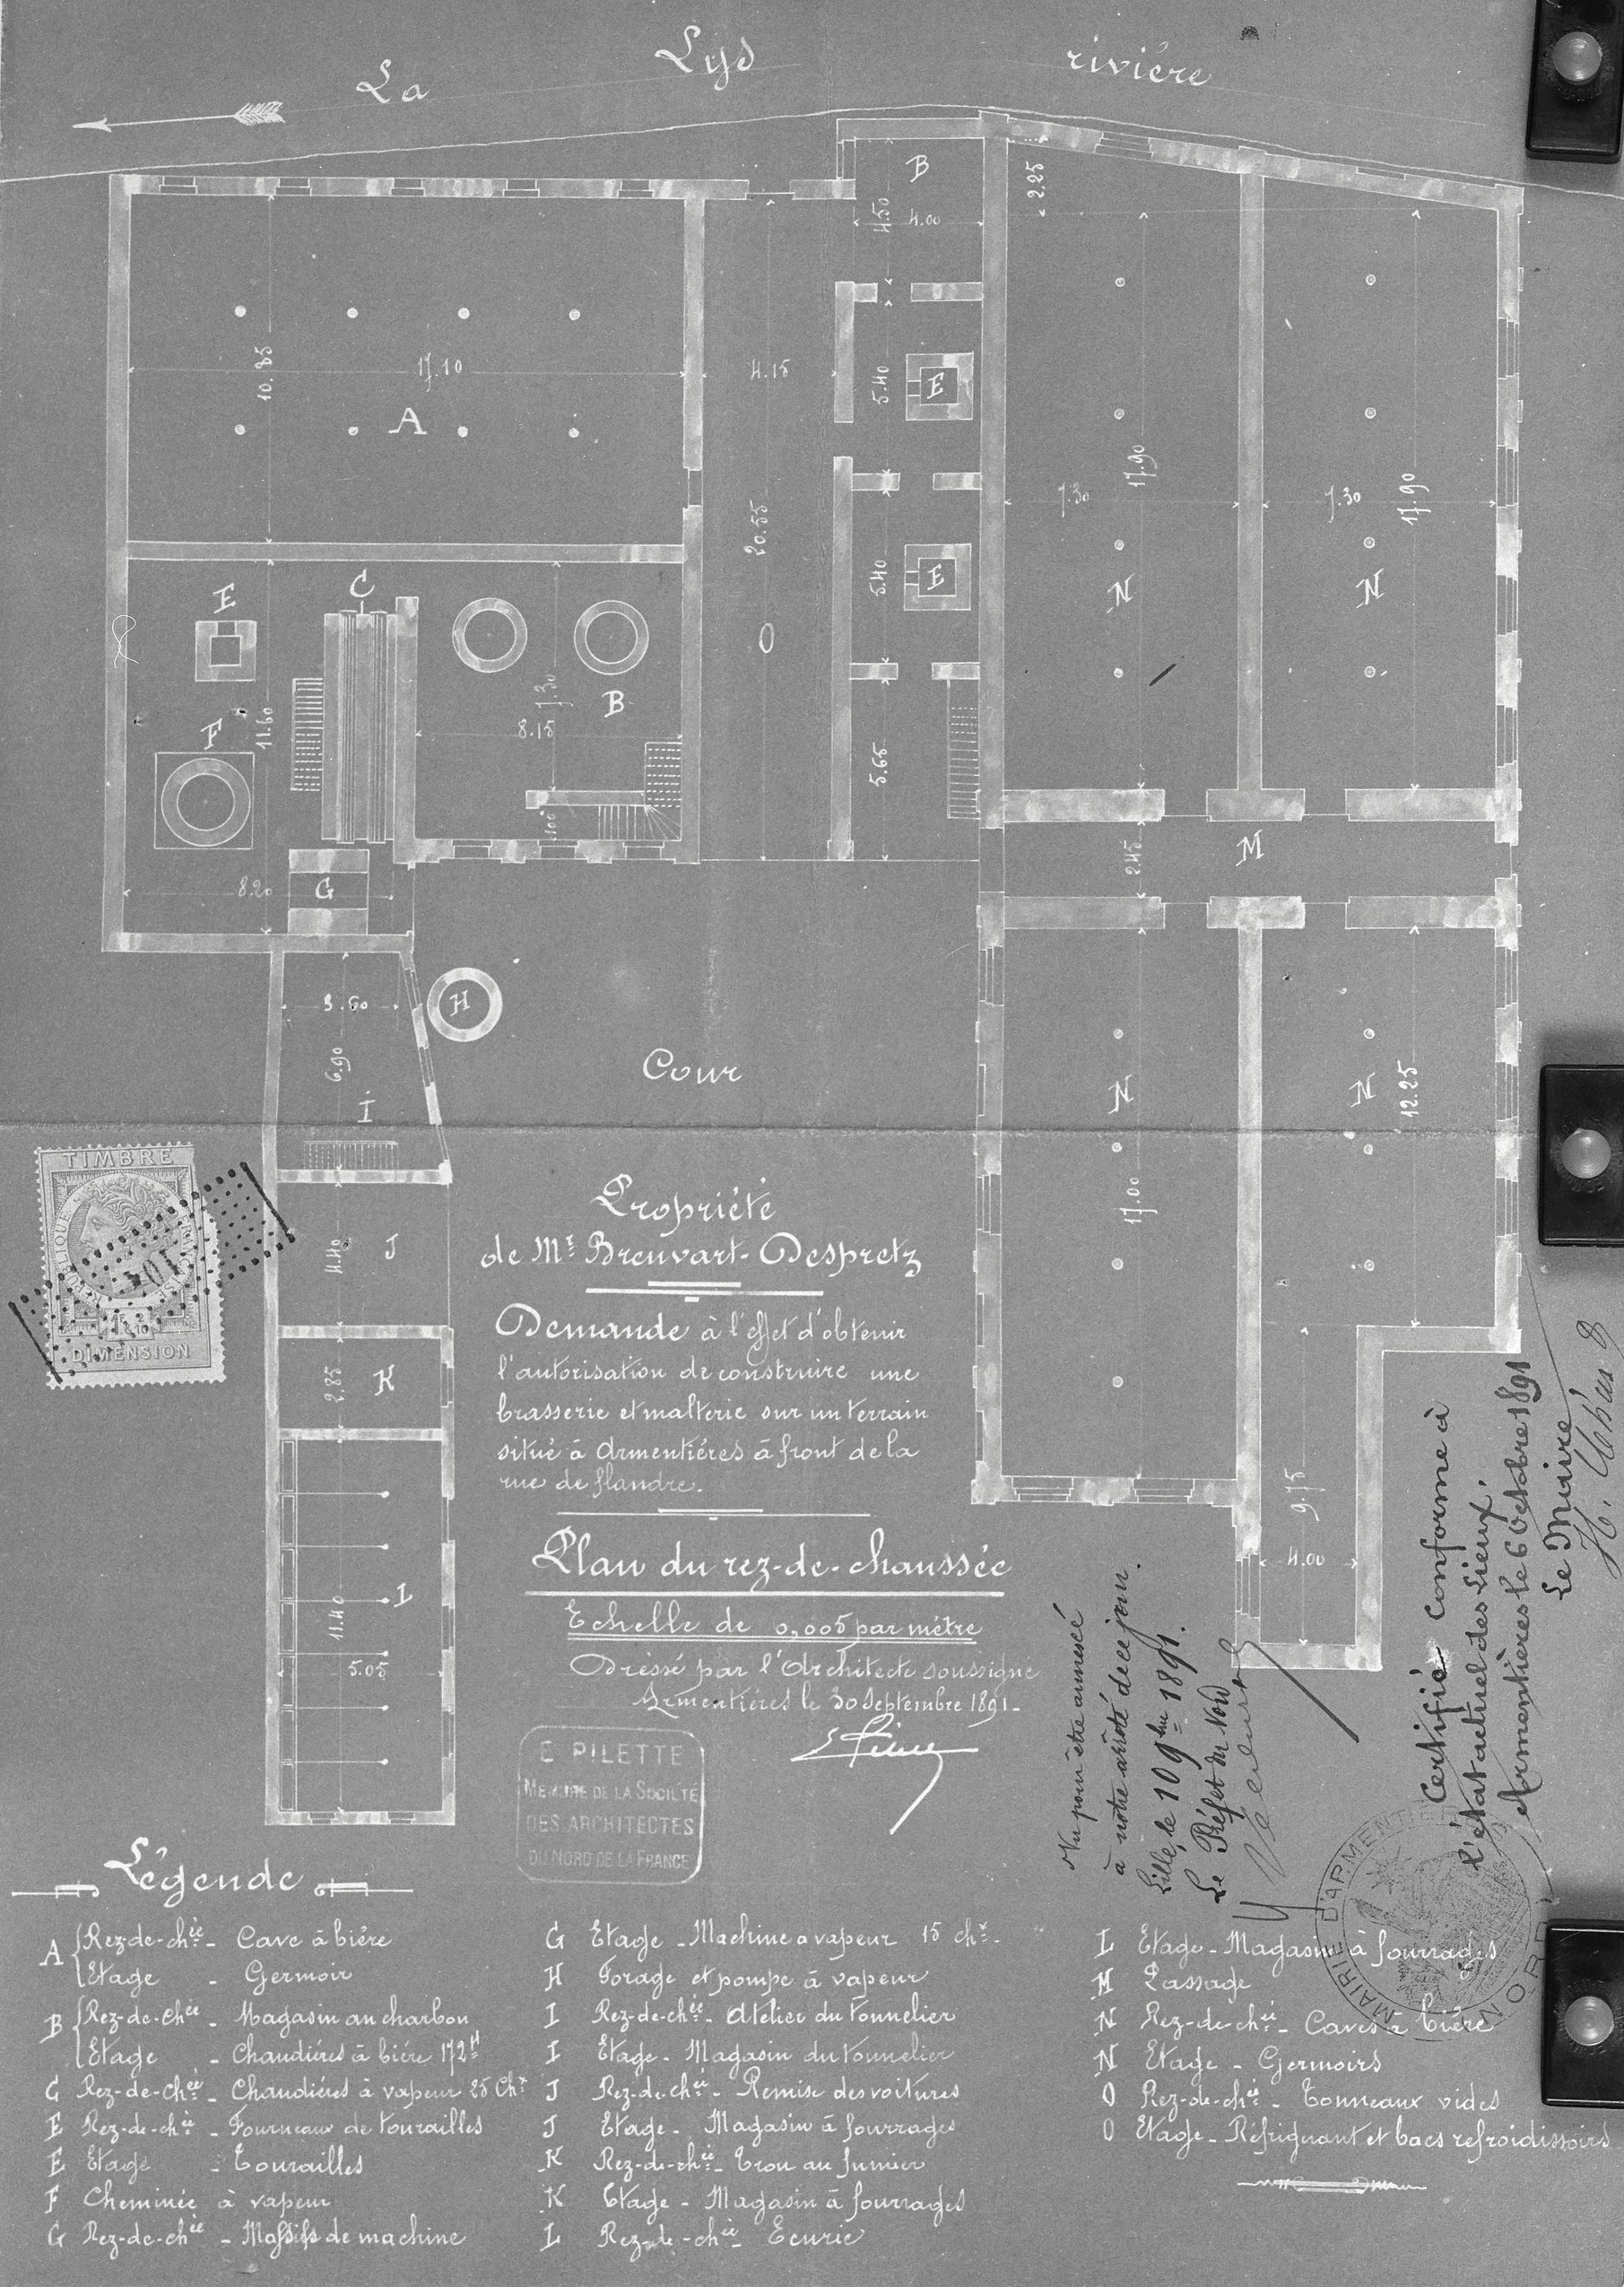 La Lys rivière
B
2.25
4.50
4.00
10.85
17.10
4.15
5.40
E
A
17.90
7.30
7.30
17.90
20.55
5.40
E
E
C
N
N
O
F
11.60
7.30
B
8.15
5.65
1.00
2.45
M
8.20
G
3.60
H
6.90
Cour
I
N
N
12.25
TIMBRE
REPUBLIQUE FRANÇAISE
DIMENSION
4.40
J
17.00
Propriété
de Mr Breuvart-Despretz
2.85
K
Demande à l'effet d'obtenir
l'autorisation de construire une
brasserie et malterie sur un terrain
situé à Armentières à front de la
rue de flandre.
9.75
4.00
11.40
L
5.05
Plan du rez-de-chaussée
Echelle de 0,005 par mètre
Dressé par l'Architecte soussigné
Armentières le 30 Septembre 1891-
E PILETTE
MEMBRE DE LA SOCIÉTÉ
DES ARCHITECTES
DU NORD DE LA FRANCE
Vu pour être annexé
à notre arrêté de ce jour.
Lille, le 10 9bre 1891.
Le Préfet du Nord
Certifié conforme à
l'état actuel des Lieux.
Armentières le 6 Octobre 1891
Le Maire
MAIRIE D'ARMENTIÈRES
NORD
Légende
A Rez-de-chée - Cave à bière
Etage - Germoir
B Rez-de-chée - Magasin au charbon
Etage - Chaudières à bière 172H
C Rez-de-chée - Chaudières à vapeur 25 Chx
E Rez-de-chée - Fourneaux de tourailles
E Etage - Tourailles
F Cheminée à vapeur
G Rez-de-chée - Massifs de machine
G Etage - Machine a vapeur 15 chx-
H Forage et pompe à vapeur
I Rez-de-chée - Atelier du tonnelier
I Etage - Magasin du tonnelier
J Rez-de-chée - Remise des voitures
J Etage - Magasin à fourrages
K Rez-de-chée - Trou au fumier
K Etage - Magasin à fourrages
L Rez-de-chée - Ecurie
L Etage - Magasin à fourrages
M Passage
N Rez-de-chée - Caves a bière
N Etage - Germoirs
O Rez-de-chée - Tonneaux vides
O Etage - Réfrignant et bacs refroidissoirs